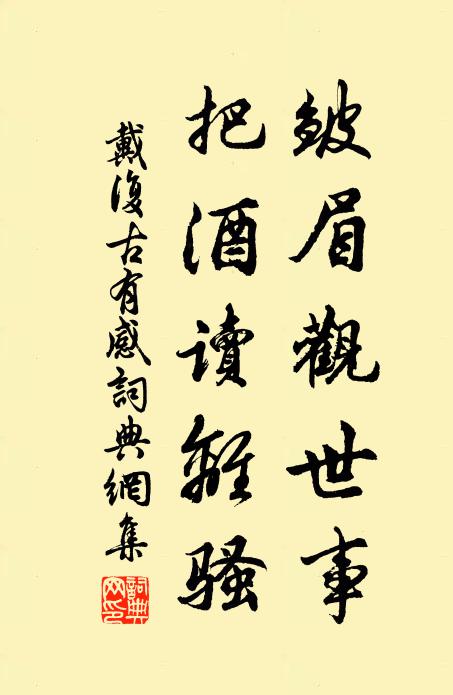 皺眉觀世事
把酒讀離騷
戴復古有感詞典網集
詞典網印